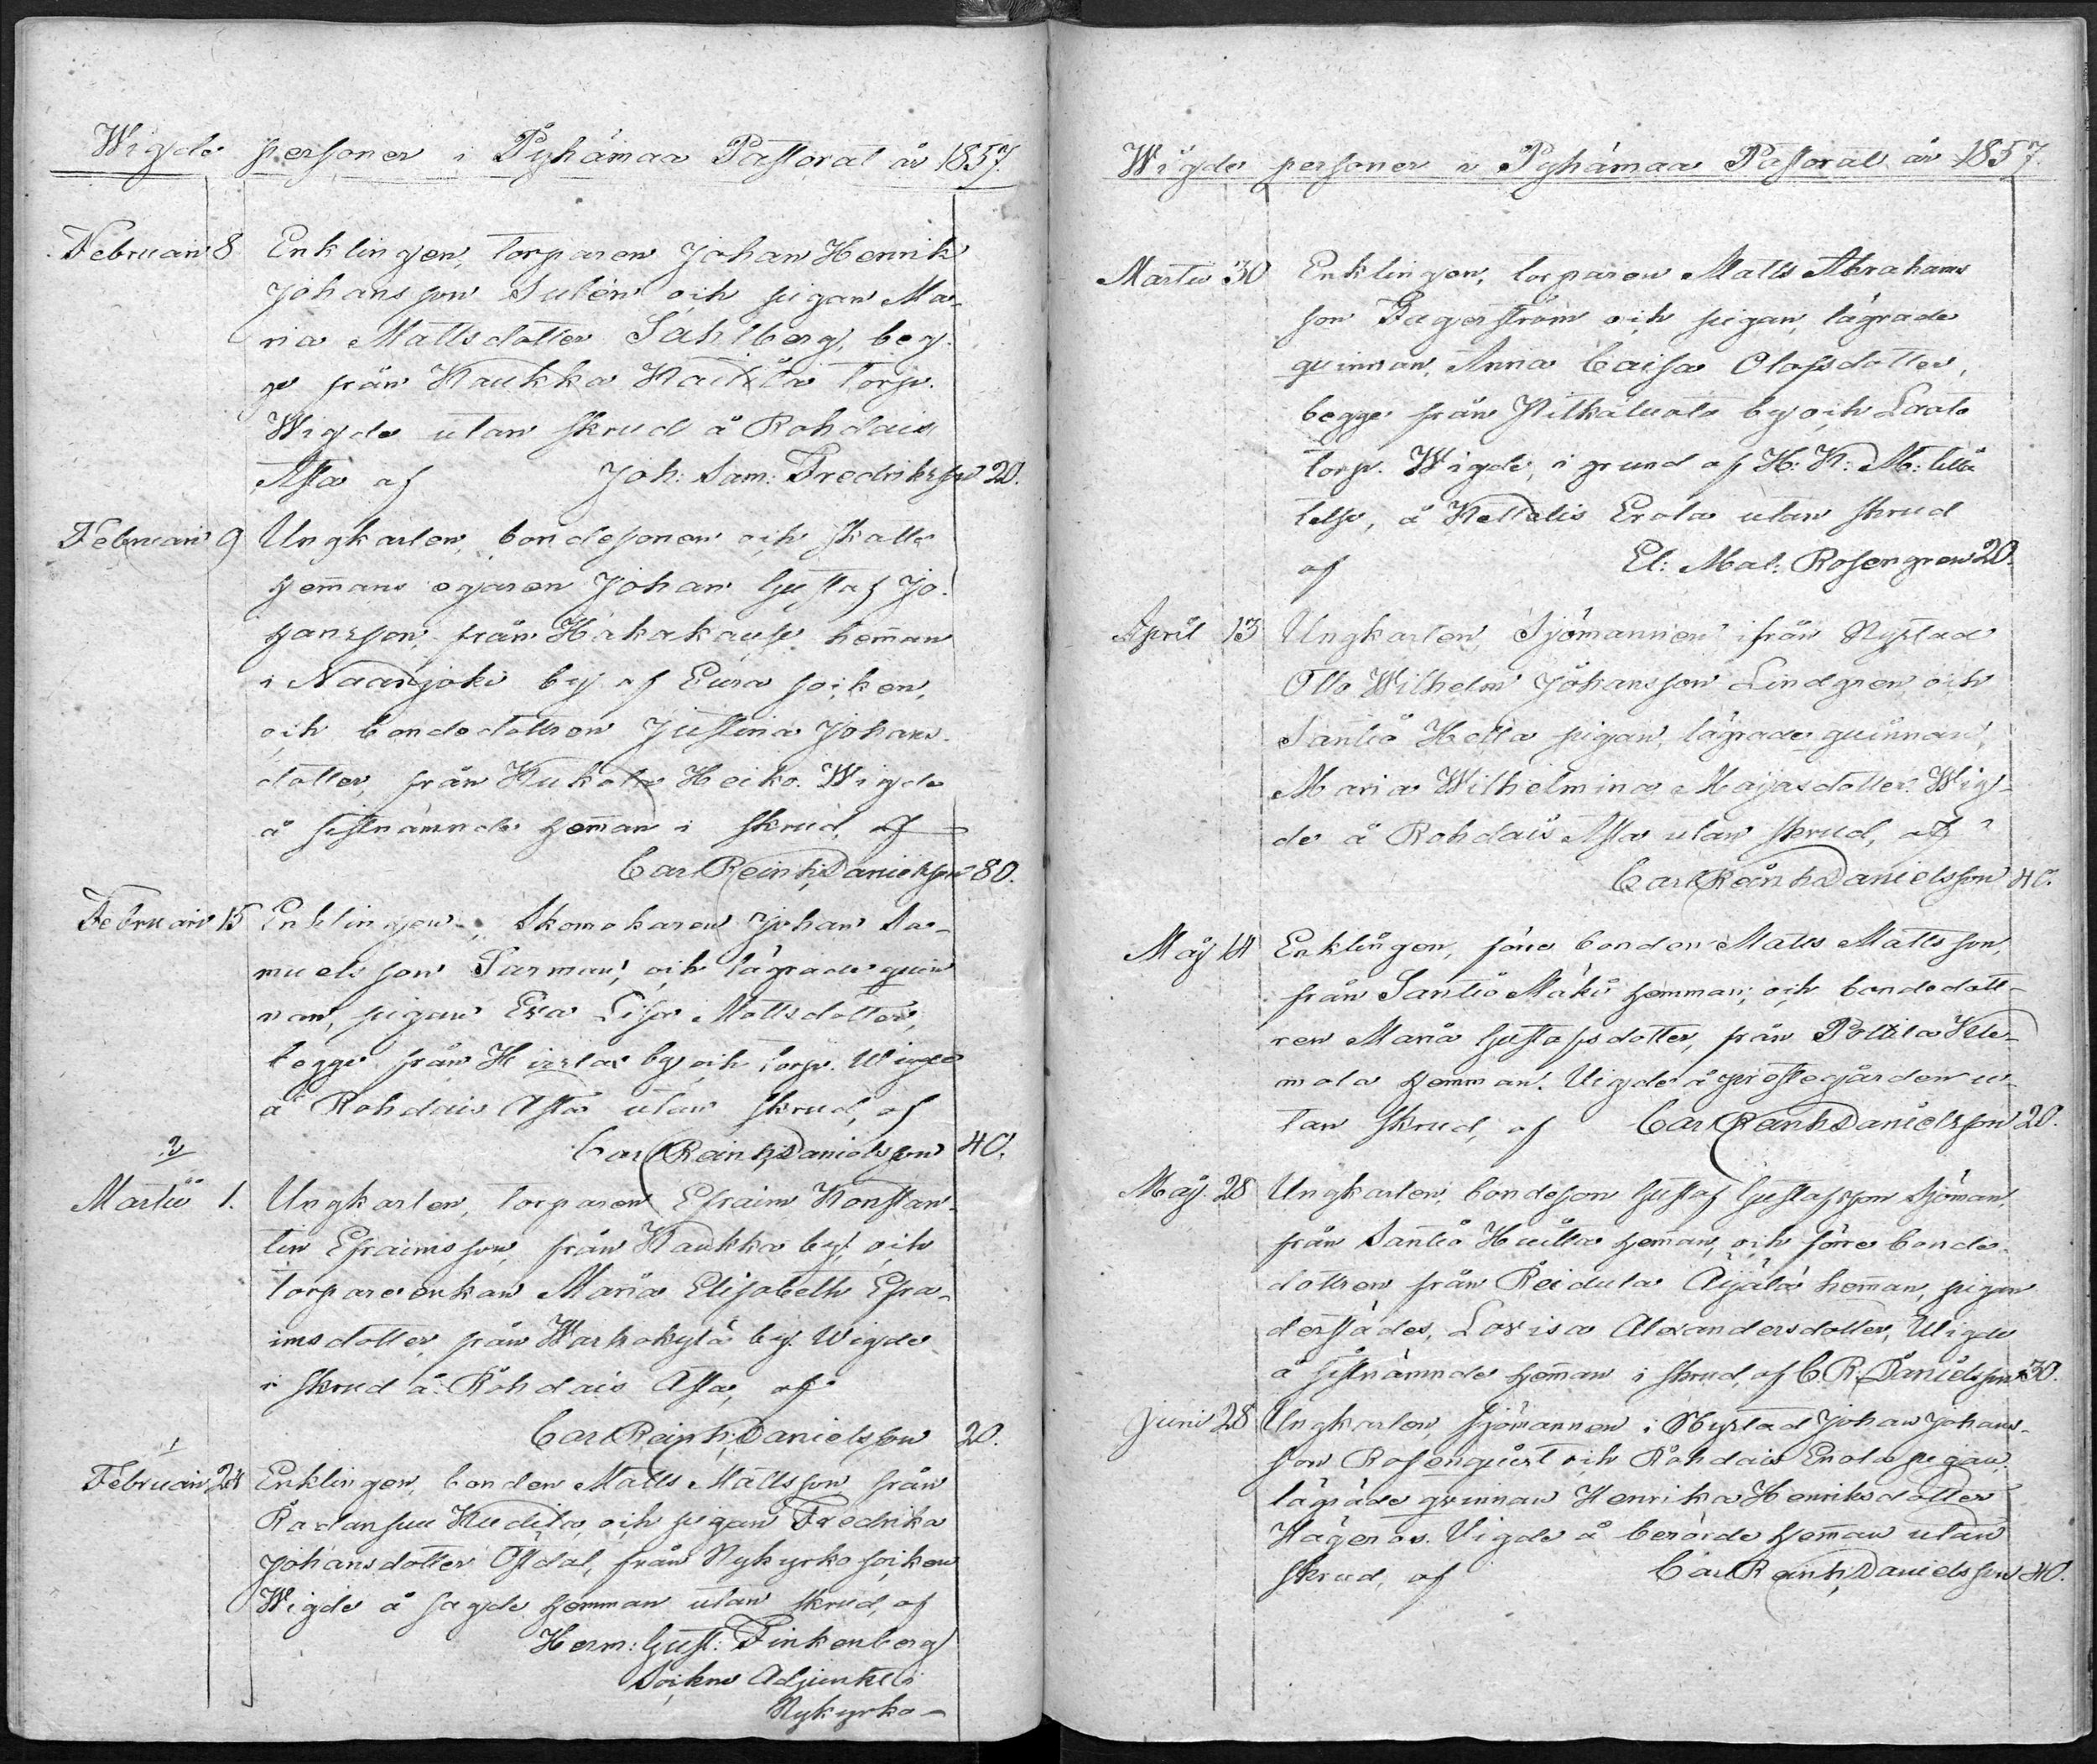 Wigde personer i Pyhämaa Pastorat år 1857.
Februari 8 Enklingen, torparen Johan Henrik
Johansson Sulén och pigan Ma-
ria Mattsdotter Sahlberg, beg-
ge från Kaukka torp.
Wigde utan skrud å Rohdais
Asta af Joh: Sam: Fredriksson 20.
Februari 9 Ungkarlen, bondesonen och skatte
hemans egaren Johan Gustaf Jo-
hansson, från heman
i Naarjoki by af Eura socken,
och bondedottren Justina Johans-
dotter, från Kukola Heiko. Wigde
å sistnämnde heman i skrud, af
Carl Reinh: Danielsson 80.
Februari 15 Enklingen, Skomakaren Johan Sa-
muelsson Surman, och lägrade qvin
nan, pigan Eva Lisa Mattsdotter,
begge från by och torp. Wigde
å Rohdais Asta utan skrud, af
Carl Reinh: Danielsson 40.
2
Martii 1. Ungkarlen, torparen Efraim Konstan-
tin Efraimsson, från Kaukka by, och
torpareenkan Maria Elisabeth Efra-
imsdotter från Warhokylä by. Wigde
i skrud å Rohdais Asta, af
Carl Reinh: Danielsson 20.
1
Februari 24 Enklingen, bonden Matts Mattsson från
Radansuu och pigan Fredrika
Johansdotter Åsdal, från Nykyrko socken
Wigde å sagde hemman utan skrud, af
Herm: Gust: Finkenberg
Sockne Adjunkt i
Nykyrko-
Wigde personer i Pyhämaa Pastorat år 1857.
Martii 30 Enklingen, torparen Matts Abrahams
son Fagerström och pigan, lägrade
qvinnan, Anna Caisa Olofsdotter,
begge från by och
torp. Wigde, i grund af H: K: M: tillå
telse, å Ketteli Erola utan skrud
af El: Mal: Rosengren 20.
April 13 Ungkarlen, Sjömannen ifrån Nystad
Otto Wilhelm Johansson Lindgren och
Santio Hotta pigan, lägrade quinnan,
Maria Wilhelmina Majasdotter. Wig-
de å Rohdais Asta utan skrud, af
Carl Reinh: Danielsson 40.
Maj 14 Enklingen, förre bonden Matts Mattsson,
från Santio Mäki hemman, och bondedott-
ren Maria Gustafsdotter, från Pottila Kle-
mola hemman. Vigde å prostegården u-
tan skrud, af Carl Reinh: Danielsson 20.
Maj 28 Ungkarlen, bondeson Gustaf Gustafsson Sjöman,
från Santio heman, och förre bonde-
dottren från Reidula Äijälä heman, pigan
derstädes, Lovisa Alexandersdotter, Vigde
å sistnämnde heman i skrud, af C. R. Danielsson 30.
Juni 28 Ungkarlen, sjömannen i Nystad Johan Johans-
son Rosenquist och Rohdais Erola pigan,
lägrade qvinnan Henrika Henriksdotter
Vigde å berörde heman utan
skrud, af Carl Reinh: Danielsson 40.